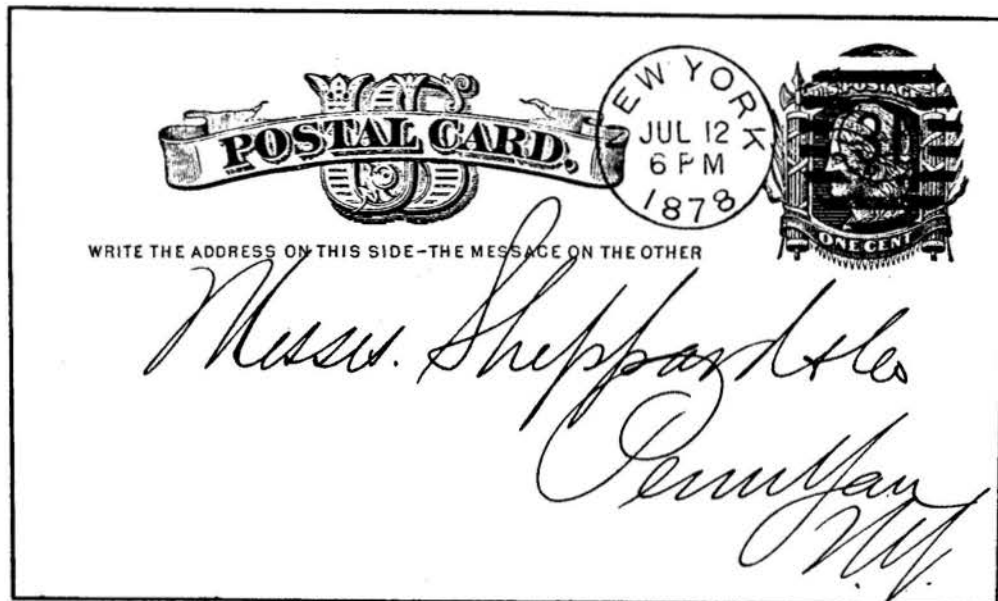 US
POSTAL CARD.
NEW YORK
JUL 12
6 PM
1878
U.S. POSTAGE
ONE CENT
WRITE THE ADDRESS ON THIS SIDE-THE MESSAGE ON THE OTHER
Messrs. Sheppard & Co
Penn Yan
N.Y.